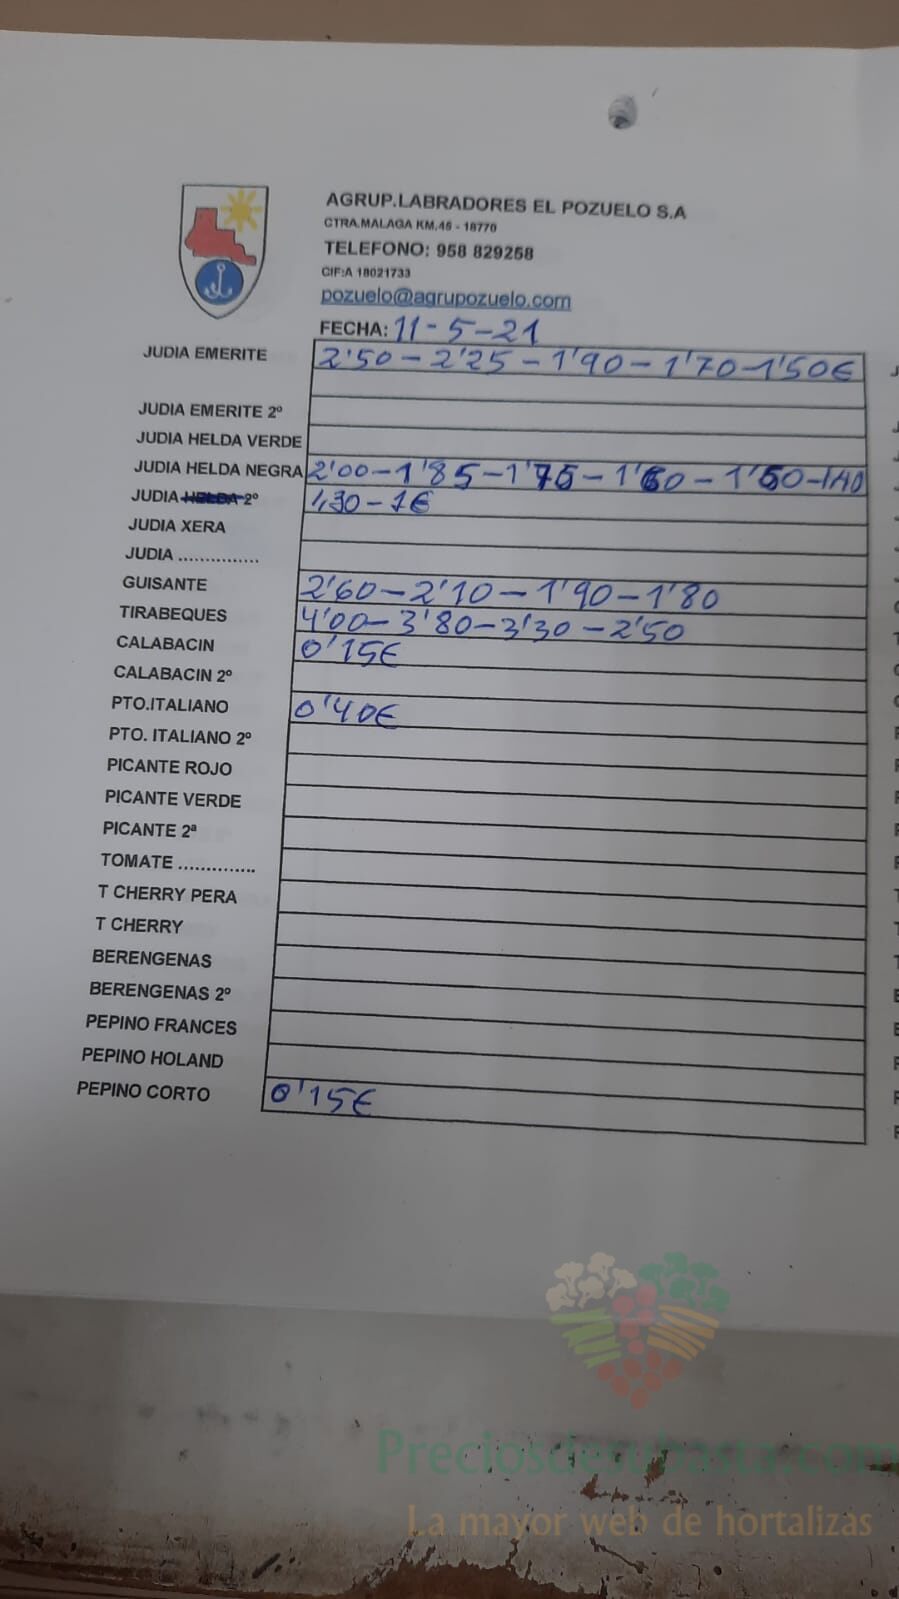 AGRUP.LABRADORES EL POZUELO S.A
CTRA.MALAGA KM.45 - 18770
TELEFONO: 958 829258
CIF:A 18021733
pozuelo@agrupozuelo.com
FECHA: 11-5-21
JUDIA EMERITE 2'50-2'25-1'90-1'70-1'50€
JUDIA EMERITE 2º
JUDIA HELDA VERDE
JUDIA HELDA NEGRA 2'00-1'85-1'75-1'60-1'50-1'40
JUDIA HELDA 2º 1,30-1€
JUDIA XERA
JUDIA ...............
GUISANTE 2'60-2'10-1'90-1'80
TIRABEQUES 4'00-3'80-3'30-2'50
CALABACIN 0'15€
CALABACIN 2º
PTO.ITALIANO 0'40€
PTO. ITALIANO 2º
PICANTE ROJO
PICANTE VERDE
PICANTE 2ª
TOMATE ..............
T CHERRY PERA
T CHERRY
BERENGENAS
BERENGENAS 2º
PEPINO FRANCES
PEPINO HOLAND
PEPINO CORTO 0'15€
Preciosdesubasta.com
La mayor web de hortalizas